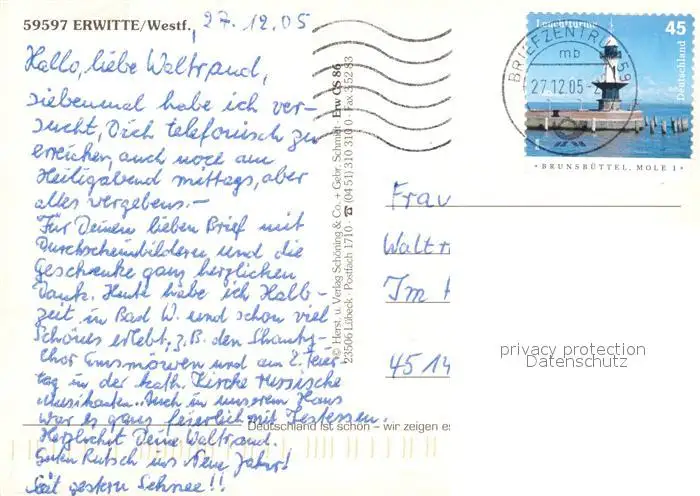 59597 ERWITTE/Westf., 27.12.05
Hallo, liebe Waltraud,
siebenmal habe ich ver-
sucht, Dich telefonisch zu
erreichen, auch noch am
Heiligabend mittags, aber
alles vergebens. –
Für Deinen lieben Brief mit
Durchscheinbildern und die
Geschenke ganz herzlichen
Dank. Heute habe ich Halb-
zeit in Bad W. und schon viel
Schönes erlebt, z.B. den Shanty-
Chor Emsmöwen und am 2. Feier
tag in der kath. Kirche russische
Musikanten. Auch in unserem Haus
war es ganz feierlich mit Festessen.
Herzlichst Deine Waltraud.
Guten Rutsch ins Neue Jahr!
Seit gestern Schnee!!
© Herst. u. Verlag Schöning & Co. + Gebr. Schmidt · Erw CS 86
23506 Lübeck · Postfach 1710 · ☎ (04 51) 310 310 0 · Fax 3 52 83
Deutschland ist schön – wir zeigen es
Leuchttürme
45
Deutschland
BRIEFZENTRUM 59
mb
27.12.05-2
· BRUNSBÜTTEL, MOLE 1 ·
Frau
Waltr
Im
4514
privacy protection
Datenschutz